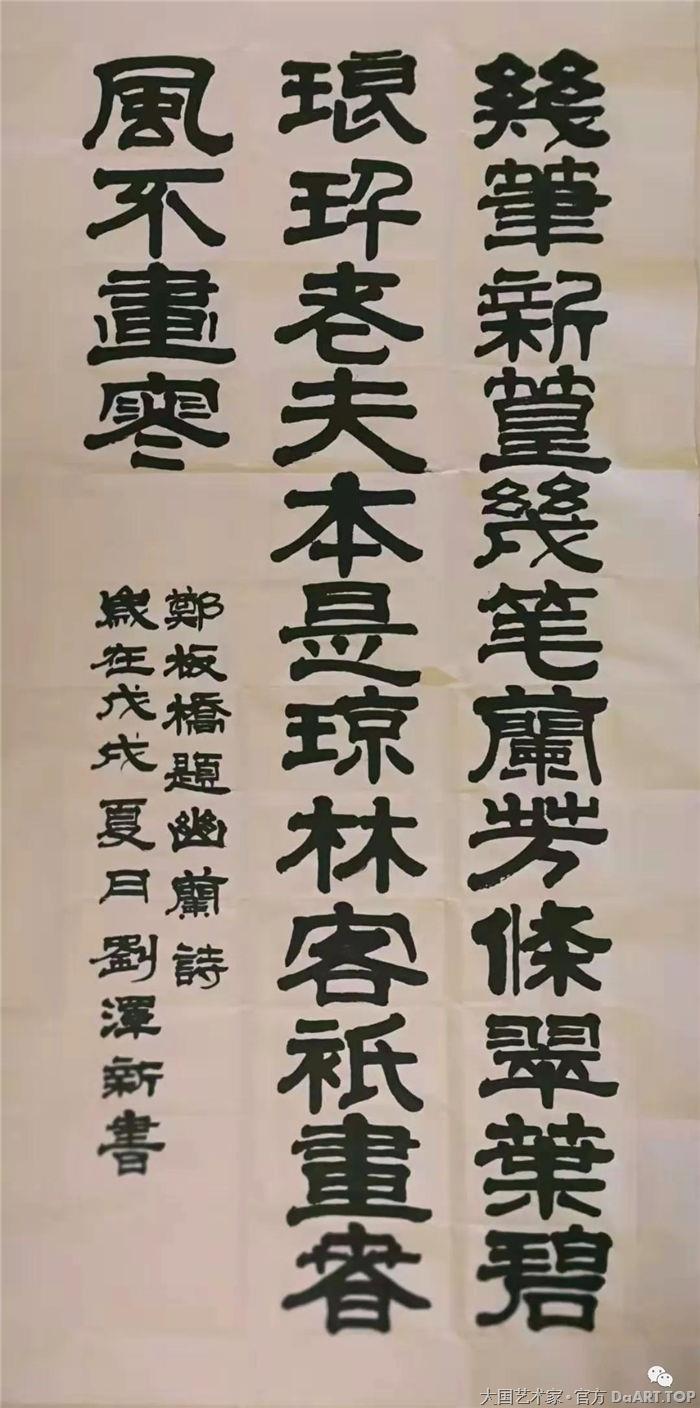 幾筆新篁幾笔蘭芳條翠葉碧
琅玕老夫本是琼林客衹畫春
風不畫寒
鄭板橋題幽蘭詩
歲在戊戌夏日劉渾新書
大国艺术家·官方 DaART.TOP